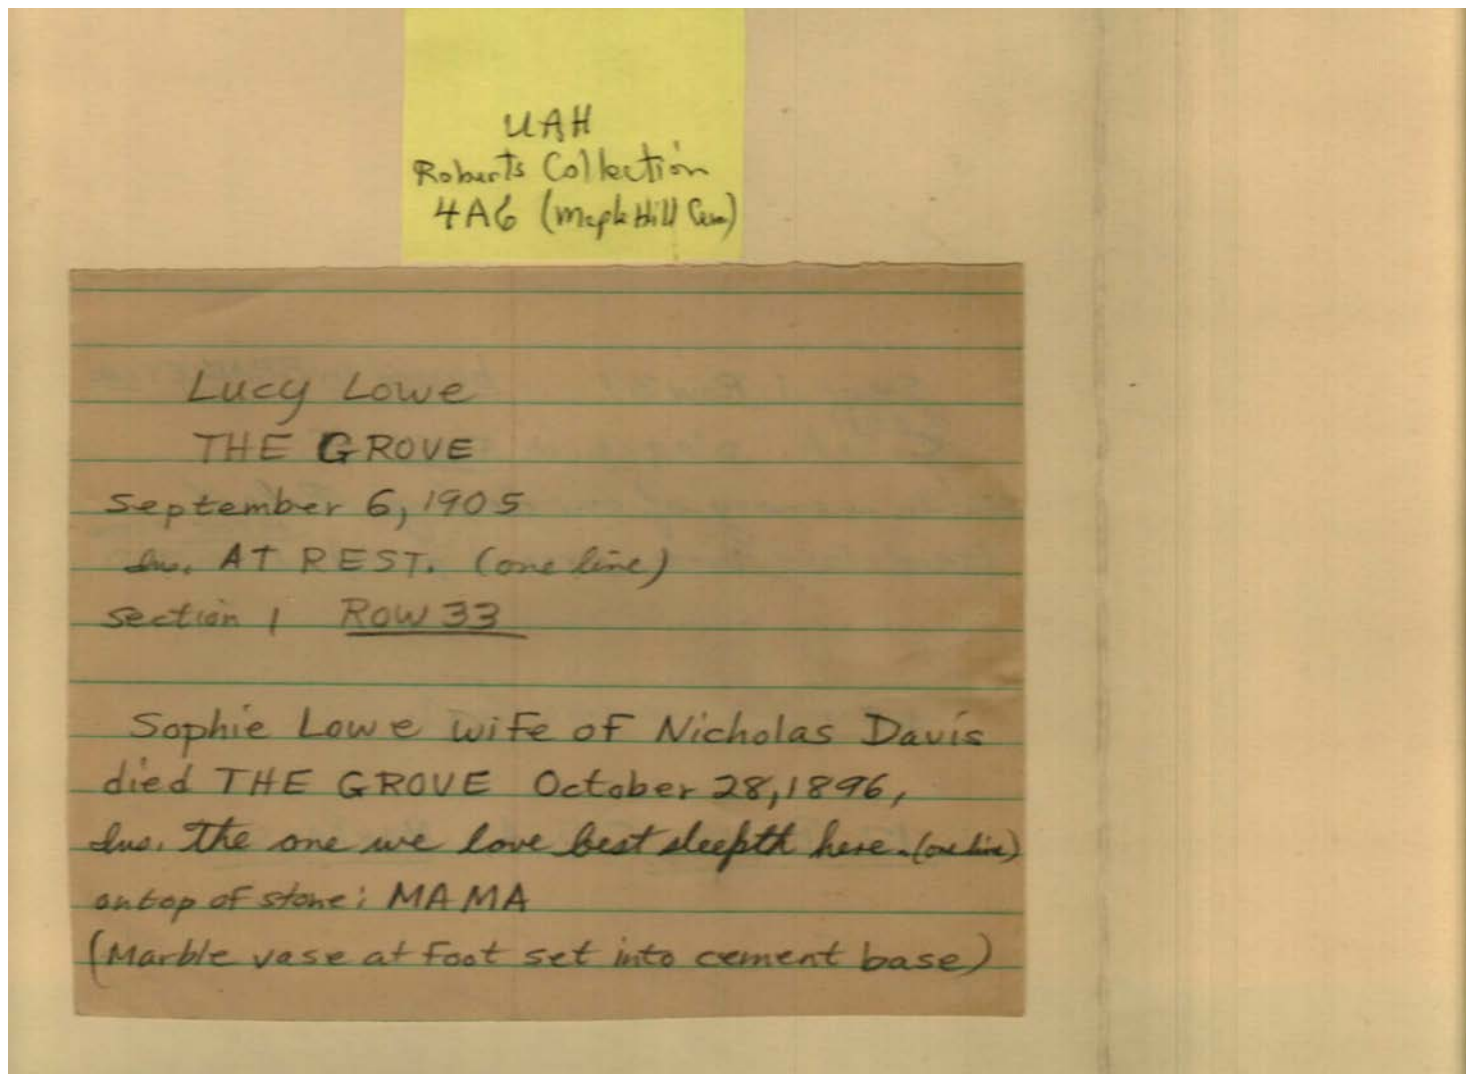 UAH
Roberts Collection
4A6 (Maple Hill Cem)
Lucy Lowe
THE GROVE
September 6, 1905
Ins. AT REST. (one line)
Section 1 Row 33
Sophie Lowe wife of Nicholas Davis
died THE GROVE October 28, 1896,
Ins. The one we love best sleepth here. (one line)
on top of stone: MAMA
(Marble vase at foot set into cement base)